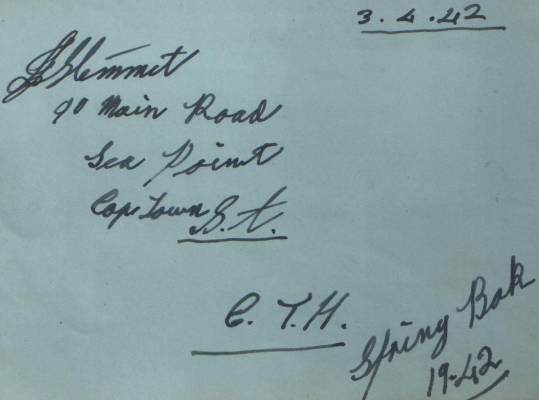 3.4.42
90 Main Road
Sea Point
Cape Town S.A.
C.T.H.
Spring Bok
1942